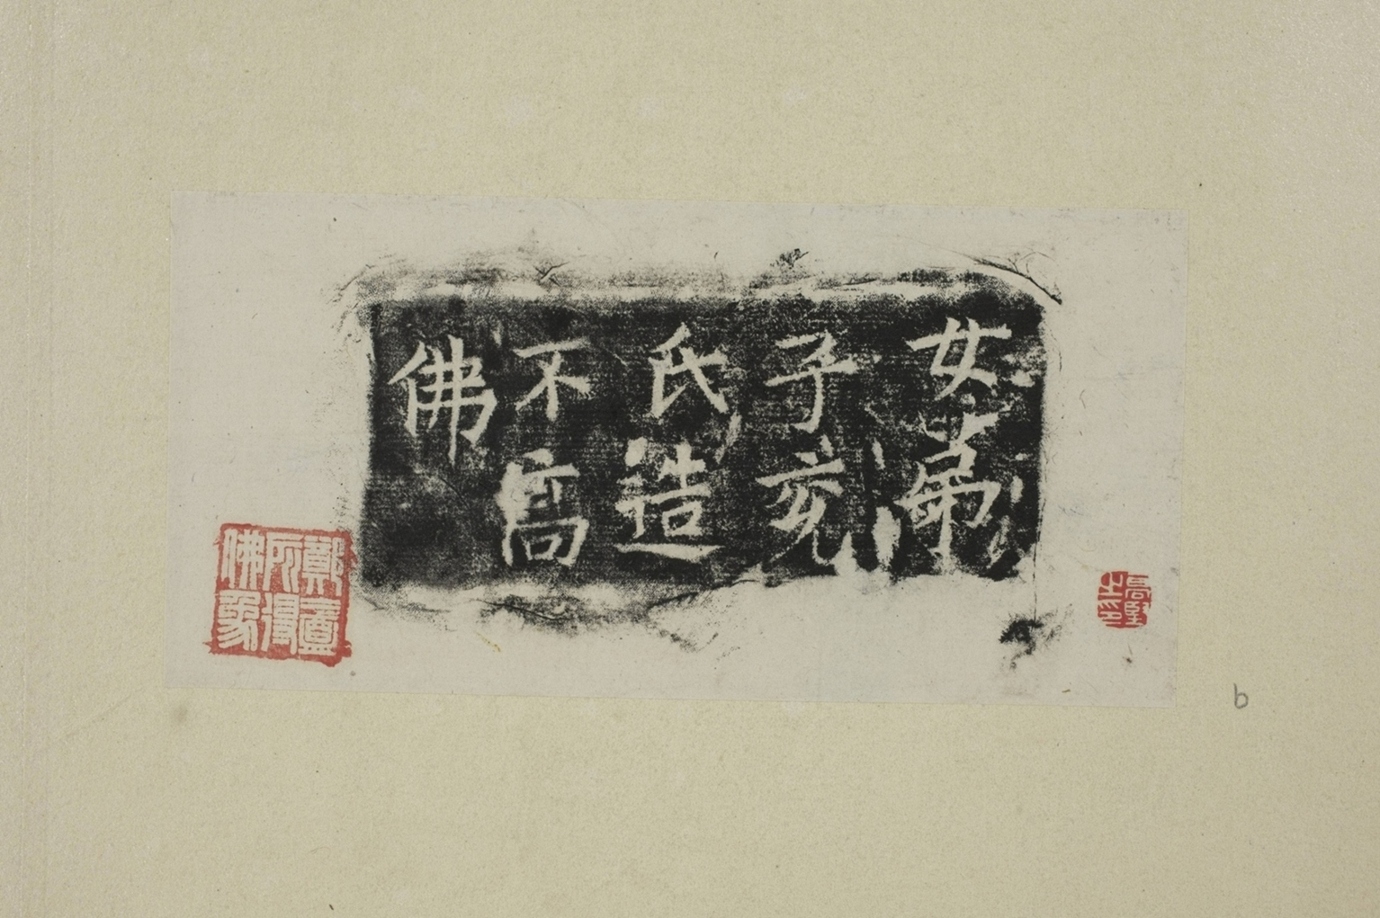 女弟
子亥
氏造
不高
佛
鄭盦
所得
佛象
之印